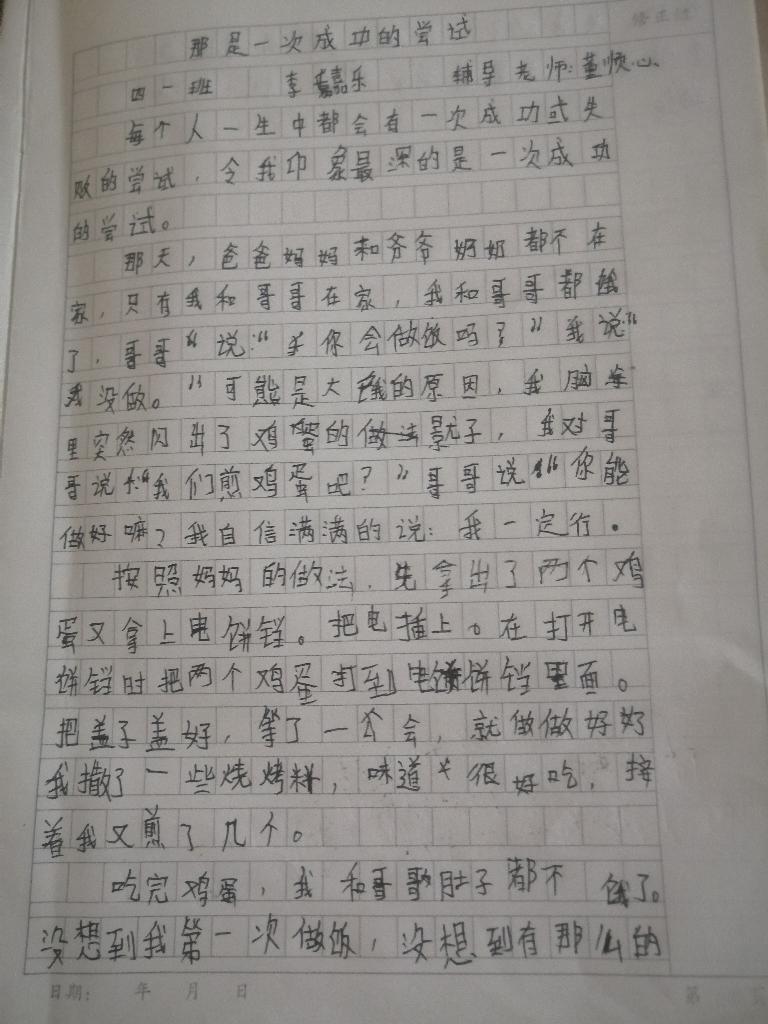 修正栏
那是一次成功的尝试
四一班 李嘉乐 辅导老师:董顺心
每个人一生中都会有一次成功或失
败的尝试,令我印象最深的是一次成功
的尝试。
那天,爸爸妈妈和爷爷奶奶都不在
家,只有我和哥哥在家,我和哥哥都饿
了,哥哥“说:“你会做饭吗?”我说:“
我没做。”可能是太饿的原因,我脑
里突然闪出了鸡蛋的做法影子,我对哥
哥说:“我们煎鸡蛋吧?”哥哥说“你能
做好嘛?我自信满满的说:我一定行.
按照妈妈的做法,先拿出了两个鸡
蛋又拿上电饼铛。把电插上。在打开电
饼铛时把两个鸡蛋打到电饼铛里面。
把盖子盖好,等了一会,就做做好好
我撒了一些烧烤料,味道很好吃,接
着我又煎了几个。
吃完鸡蛋,我和哥歌肚子都不饿了。
没想到我第一次做饭,没想到有那么的
日期: 年 月 日 第 页